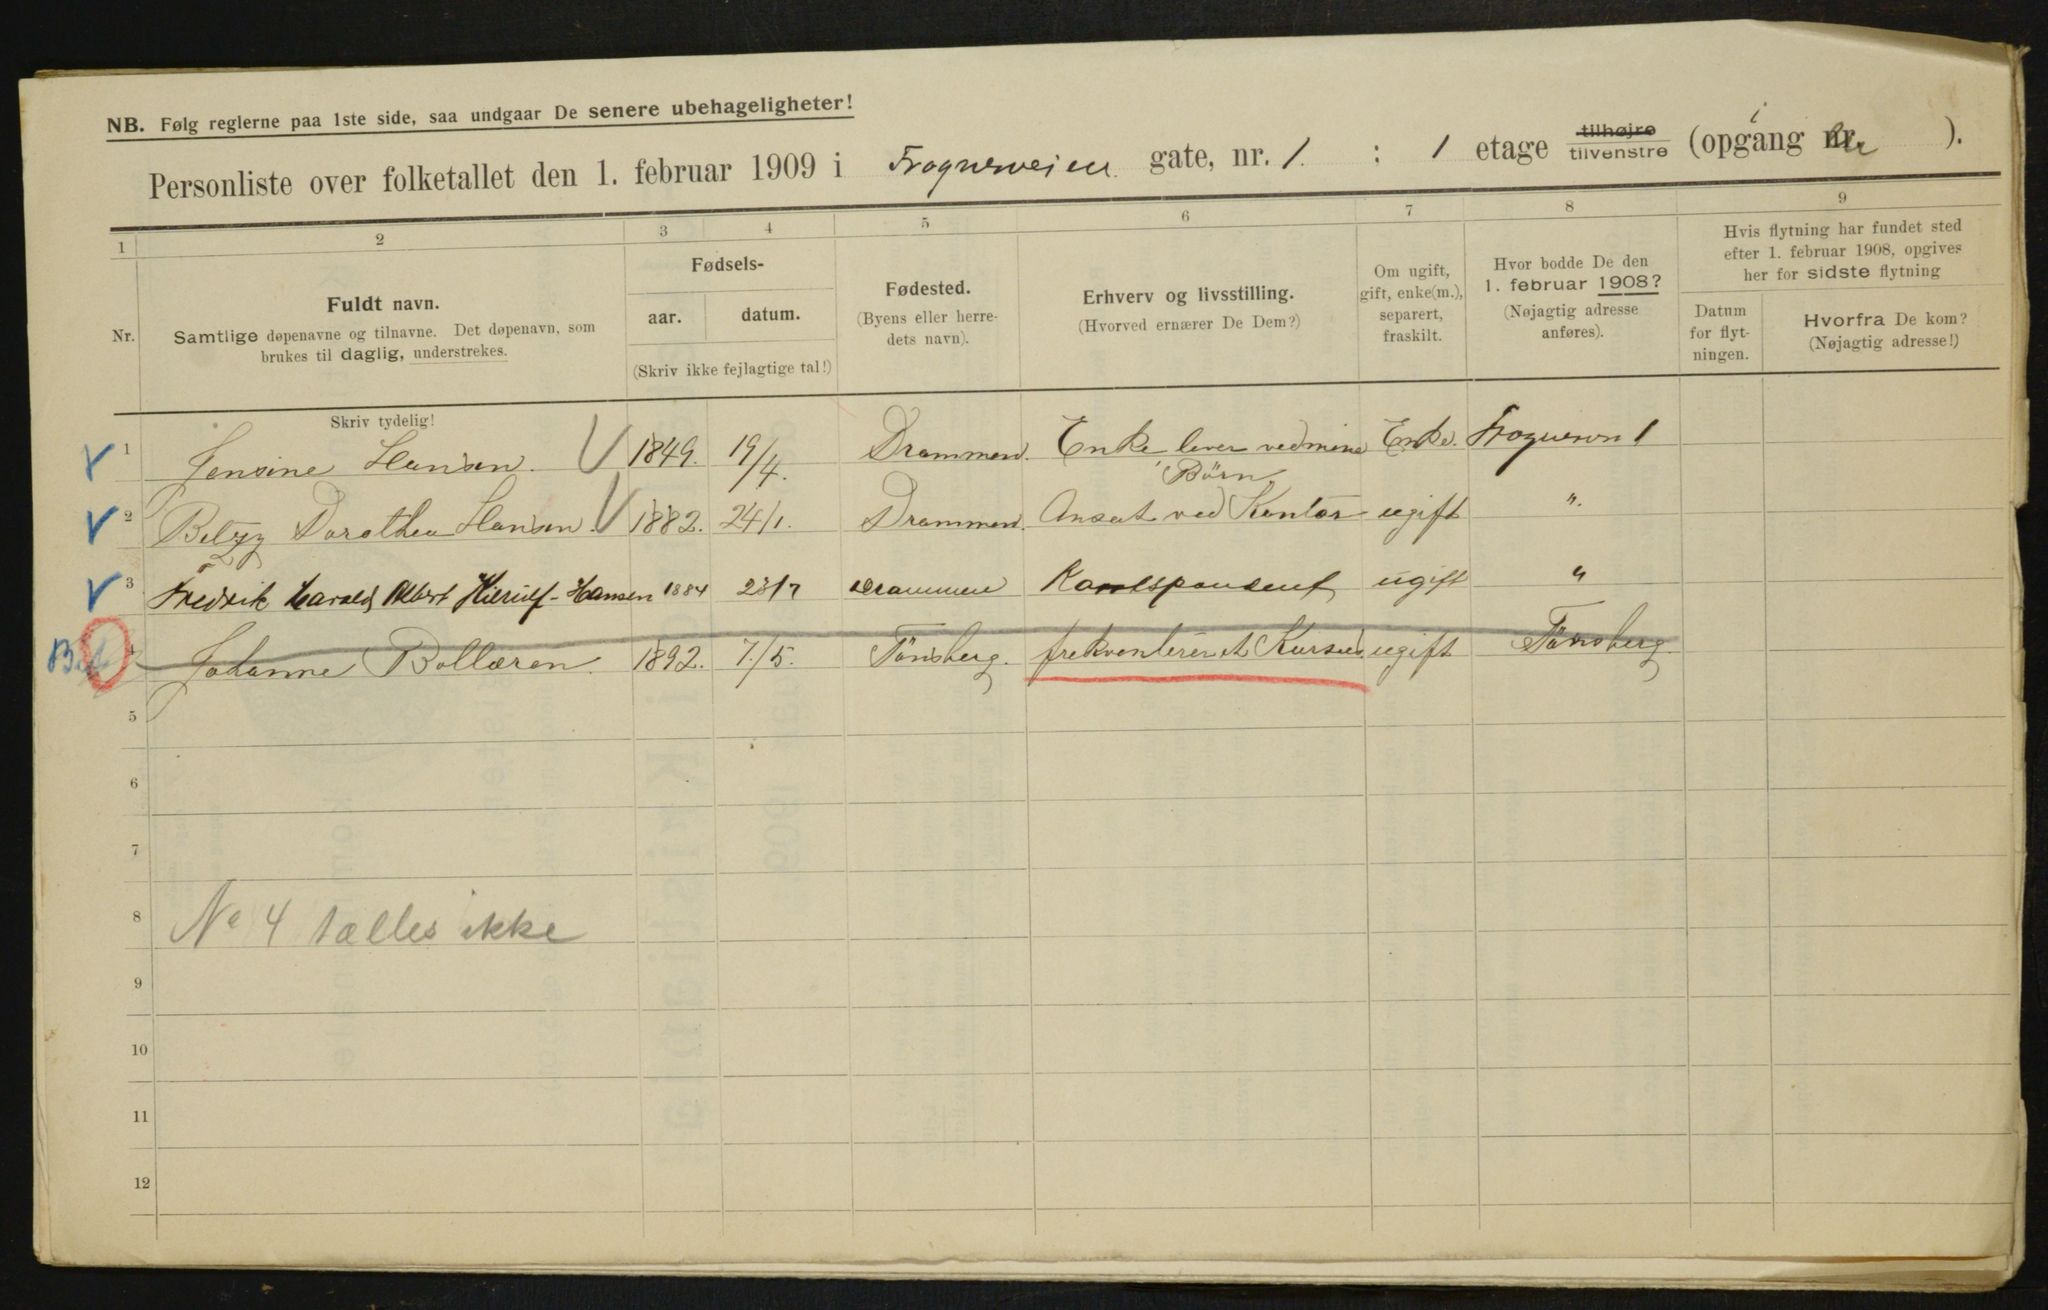 NB. Følg reglerne paa 1ste side, saa undgaar De senere ubehageligheter!
Personliste over folketallet den 1. februar 1909 i Frognerveien gate, nr. 1. : 1 etage tilhøjre tilvenstre (opgang nr. ).
1 2 3 4 5 6 7 8 9
Nr.
Fuldt navn.
Samtlige døpenavne og tilnavne. Det døpenavn, som
brukes til daglig, understrekes.
Skriv tydelig!
Fødsels-
aar. datum.
(Skriv ikke fejlagtige tal!)
Fødested.
(Byens eller herre-
dets navn).
Erhverv og livsstilling.
(Hvorved ernærer De Dem?)
Om ugift,
gift, enke(m.),
separert,
fraskilt.
Hvor bodde De den
1. februar 1908?
(Nøjagtig adresse
anføres).
Hvis flytning har fundet sted
efter 1. februar 1908, opgives
her for sidste flytning
Datum
for flyt-
ningen.
Hvorfra De kom?
(Nøjagtig adresse!)
1 Jensine Hansen. 1849. 19/4. Drammen. Enke lever ved mine Enke. Frognervn 1
Børn
2 Betzy Dorothea Hansen. 1882. 24/1. Drammen. Ansat ved Kontor ugift ".
3 Fredrik Harald Albert Hierulf-Hansen 1884 23/7 Drammen Korrespondent ugift "
4 Johanne Bollæren. 1892. 7./5. Tønsberg. frekventerer et Kursus. ugift Tønsberg.
5
6
7
8 No 4 tælles ikke
9
10
11
12